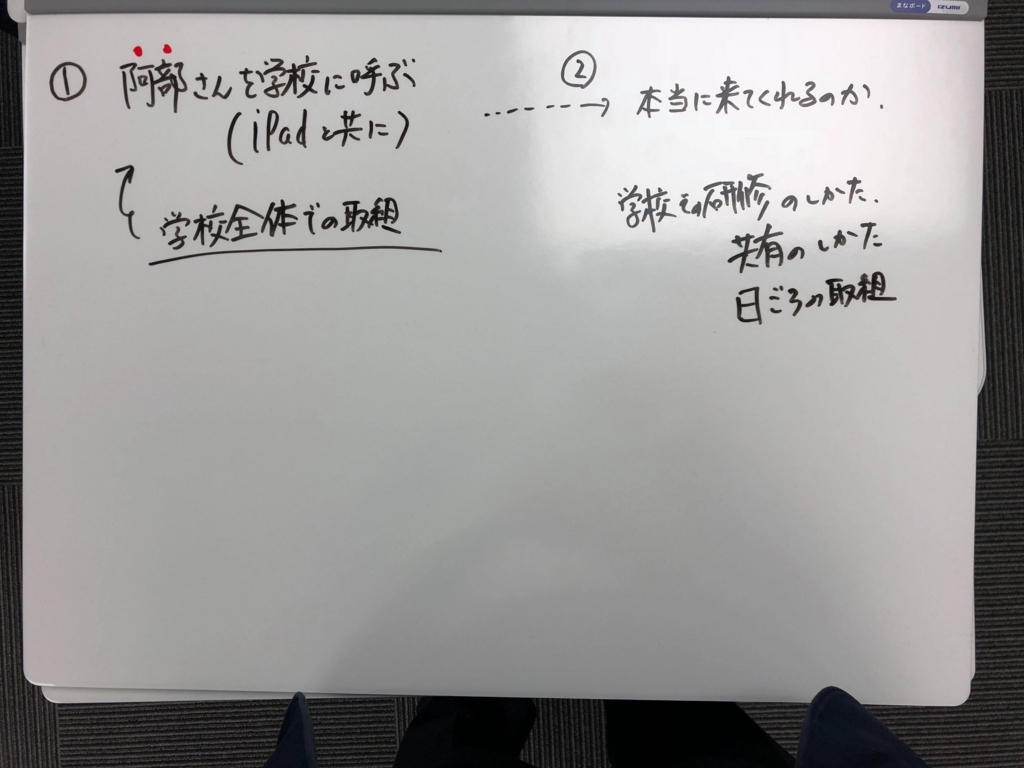 ① 阿部さんを学校に呼ぶ
(iPadと共に)
学校全体での取組
②
本当に来てくれるのか.
学校での研修のしかた.
共有のしかた
日ごろの取組
まなボード IZUMI